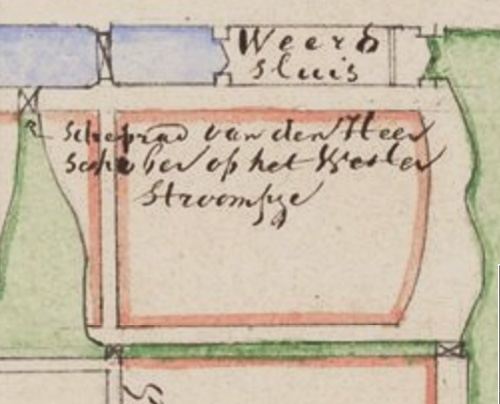 Weerd
sluis
R
Scheprad van den Heer
Schober op het Wester
Stroompje